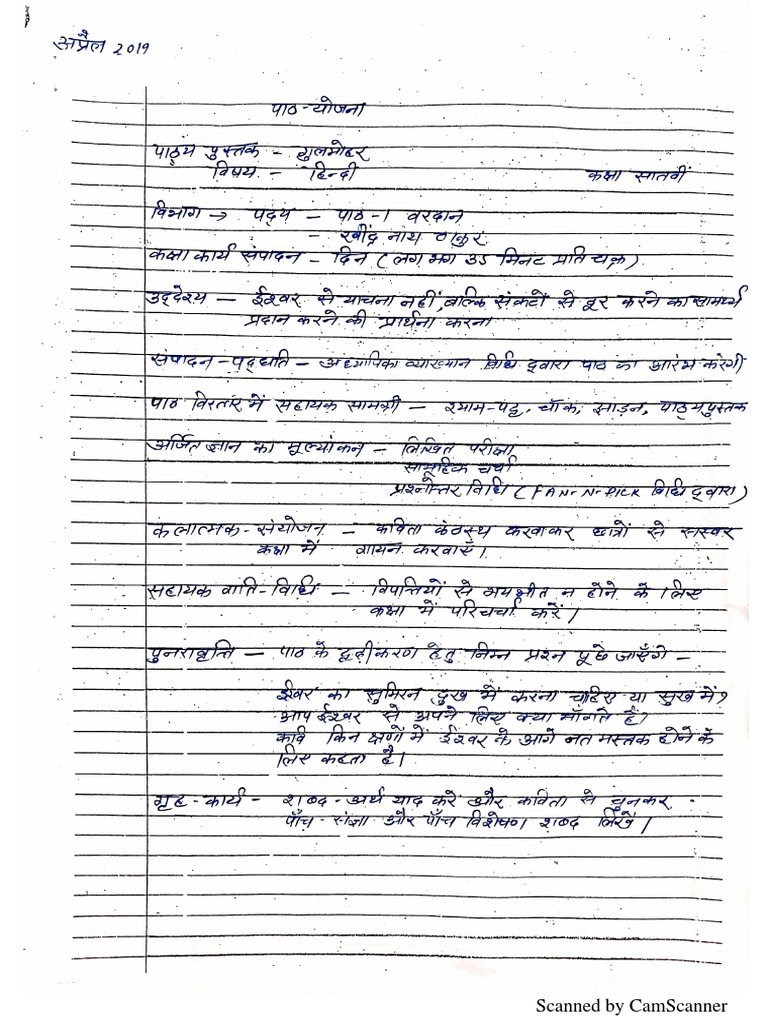 अप्रैल 2019
पाठ-योजना
पाठ्य पुस्तक - गुलमोहर
विषय - हिन्दी कक्षा सातवीं
विभाग → पद्य - पाठ-1 वरदान
- रवींद्र नाथ ठाकुर
कक्षा कार्य संपादन - दिन (लगभग 35 मिनट प्रति चक्र)
उद्देश्य - ईश्वर से याचना नहीं, बल्कि संकटों से दूर करने का सामर्थ्य
प्रदान करने की प्रार्थना करना
संपादन-पद्धति - अध्यापिका व्याख्यान विधि द्वारा पाठ का आरंभ करेगी
पाठ विस्तार में सहायक सामग्री - श्याम-पट्ट, चॉक, झाड़न, पाठ्यपुस्तक
अर्जित ज्ञान का मूल्यांकन - लिखित परीक्षा
सामूहिक चर्चा
प्रश्नोत्तर विधि (FAN-N-PICK विधि द्वारा)
कलात्मक-संयोजन - कविता कंठस्थ करवाकर छात्रों से सस्वर
कक्षा में गायन करवाएँ।
सहायक गति-विधि - विपत्तियों से भयभीत न होने के लिए
कक्षा में परिचर्चा करें।
पुनरावृत्ति - पाठ के दृढ़ीकरण हेतु निम्न प्रश्न पूछे जाएँगे -
ईश्वर का सुमिरन दुख में करना चाहिए या सुख में?
आप ईश्वर से अपने लिए क्या माँगते हैं?
कवि किन क्षणों में ईश्वर के आगे नत मस्तक होने के
लिए कहता है।
गृह-कार्य - शब्द-अर्थ याद करें और कविता से चुनकर
पाँच संज्ञा और पाँच विशेषण शब्द लिखें।
Scanned by CamScanner